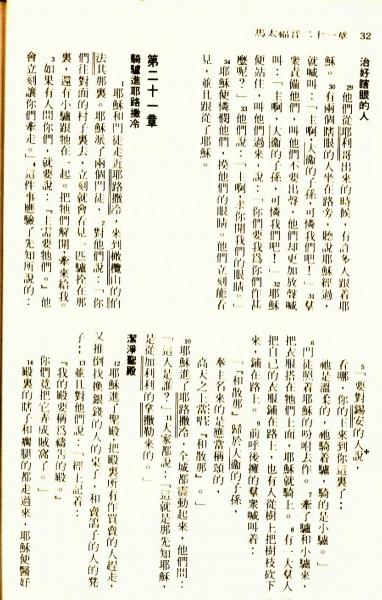 馬太福音二十一章 32
治好瞎眼的人
29他們從耶利哥出來的時候，有許多人跟着耶
穌。30有兩個瞎眼的人坐在路旁，聽說耶穌經過，
就喊叫：「主啊，大衞的子孫，可憐我們吧！」31羣
衆責備他們，叫他們不要出聲，他們却更加放聲喊
叫：「主啊，大衞的子孫，可憐我們吧！」32耶穌
便站住，叫他們過來，說：「你們要我爲你們作甚
麼呢？」33他們說：「主啊，求你開我們的眼睛。」
34耶穌便憐憫他們，摸他們的眼睛，他們立刻能看
見，並且跟從了耶穌。
第二十一章
騎驢進耶路撒冷
1耶穌和門徒走近耶路撒冷，來到橄欖山的伯
法其那裏。耶穌派了兩個門徒，2對他們說：「你
們往對面的村子裏去，立刻就會看見一匹驢拴在那
裏，還有小驢跟牠在一起。把牠們解開，牽來給我。
3如果有人問你們，就要說：『主需要牠們。』他
會立刻讓你們牽走。」4這件事應驗了先知所說的：
5「要對錫安的人說，
看哪，你的王來到你這裏了；
祂是溫柔的，祂騎着驢，騎的是小驢。」
6門徒照着耶穌的吩咐去作。7牽了驢和小驢來，
把衣服搭在牠們上面，耶穌就騎上。8有一大羣人
把自己的衣服鋪在路上，也有人從樹上把樹枝砍下
來，鋪在路上。9前呼後擁的羣衆喊叫着：
「『和散那』歸於大衞的子孫，
奉主名來的是應當稱頌的，
高天之上當唱『和散那』。」
10耶穌進了耶路撒冷，全城都震動起來，他們問：
「這人是誰？」11大家都說：「這就是那先知耶穌，
是從加利利的拿撒勒來的。」
潔淨聖殿
12耶穌進了聖殿，把殿裏所有作買賣的人趕走，
又推倒找換銀錢的人的桌子，和賣鴿子的人的凳
子；13並且對他們說：「經上記着：
『我的殿要稱爲禱告的殿。』
你們竟把它弄成賊窩了。」
14殿裏的瞎子和瘸腿的都走過來，耶穌便醫好